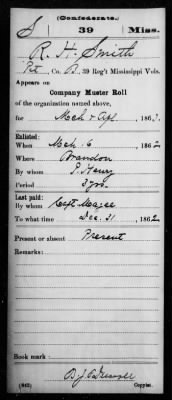 (Confederate.)
S 39 Miss.
R. H. Smith
Pvt, Co. B, 39 Reg't Mississippi Vols.
Appears on
Company Muster Roll
of the organization named above,
for Mch & Apl, 1863.
Enlisted:
When Mch 6, 1862
Where Brandon
By whom J. Henry
Period 3 yrs.
Last paid:
By whom Capt Magee
To what time Dec. 31, 1862
Present or absent Present
Remarks:
Book mark:
(642) Copyist.